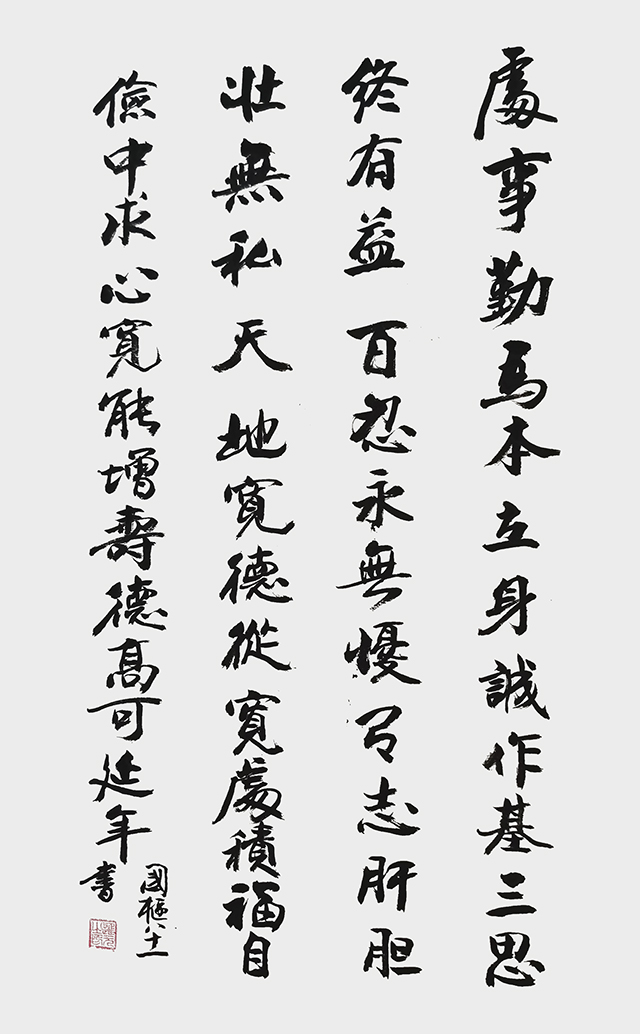 處事勤為本立身誠作基三思
終有益百忍永無懮有志肝胆
壯無私天地寬德從寬處積福自
儉中求心寬能增壽德高可延年
國樞八十一
書